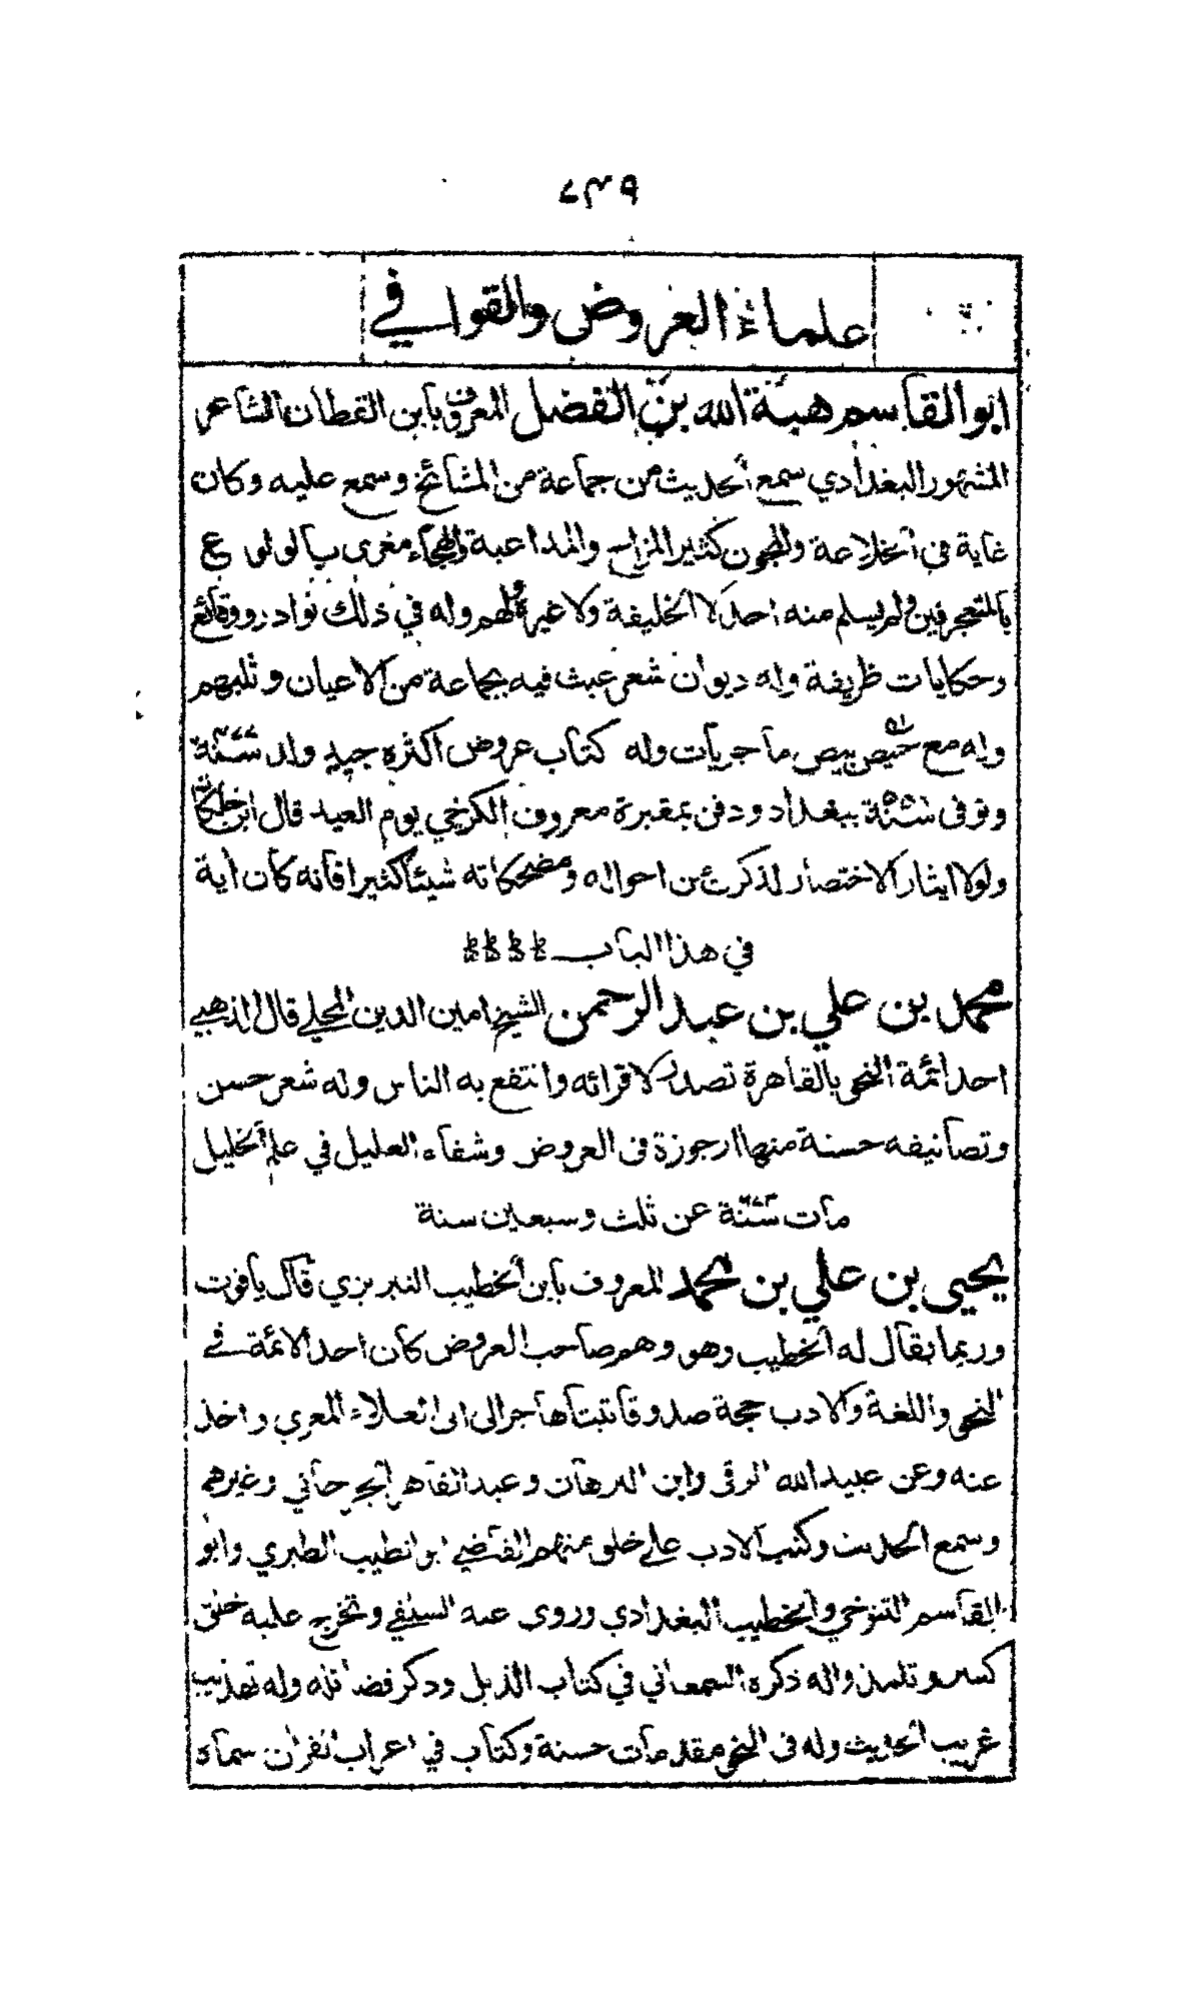 ٧٣٩
علماء العروض والقوافي
ابو القاسم هبة الله بن الفضل المعروف بابن القطان الشاعر
المشهور البغدادي سمع الحديث من جماعة من المشائخ وسمع عليه وكان
غاية في الخلاعة والمجون كثير المزاح والمداعبة والهجاء مغرى بالولوع
بالمتعجرفين ولم يسلم منه احد لا الخليفة ولا غيره ولهم وله في ذلك نوادر ووقائع
وحكايات ظريفة وله ديوان شعر عبث فيه بجماعة من الاعيان وثلبهم
وله مع حيص بيص ماجريات وله كتاب عروض اكثره جيد ولد سنة
وتوفى سنة ببغداد ودفن بمقبرة معروف الكرخي يوم العيد قال ابن خلكان
ولولا ايثار الاختصار لذكرت من احواله ومضحكاته شيئا كثيرا فانه كان اية
في هذا الباب
محمد بن علي بن عبد الرحمن الشيخ امين الدين المحلي قال الذهبي
احد ائمة النحو بالقاهرة تصدر لاقرائه وانتفع به الناس وله شعر حسن
وتصانيفه حسنة منها ارجوزة في العروض وشفاء العليل في علم الخليل
مات سنة عن ثلث وسبعين سنة
يحيى بن علي بن محمد المعروف بابن الخطيب التبريزي قال ياقوت
وربما يقال له الخطيب وهو وهم صاحب العروض كان احد الائمة في
النحو واللغة والادب حجة صدوقا ثبتا هاجر الى ابي العلاء المعري واخذ
عنه وعن عبيد الله الرقي وابن الدهان وعبد القاهر الجرجاني وغيرهم
وسمع الحديث وكتب الادب على خلق منهم القاضي ابن الطيب الطبري وابو
القاسم التنوخي والخطيب البغدادي وروى عنه السلفي وتخرج عليه خلق
كثير وتلمذ واله ذكره السمعاني في كتاب الذيل وذكر فضائله وله تهذيب
غريب الحديث وله في النحو مقدمات حسنة وكتاب في اعراب القران سماه